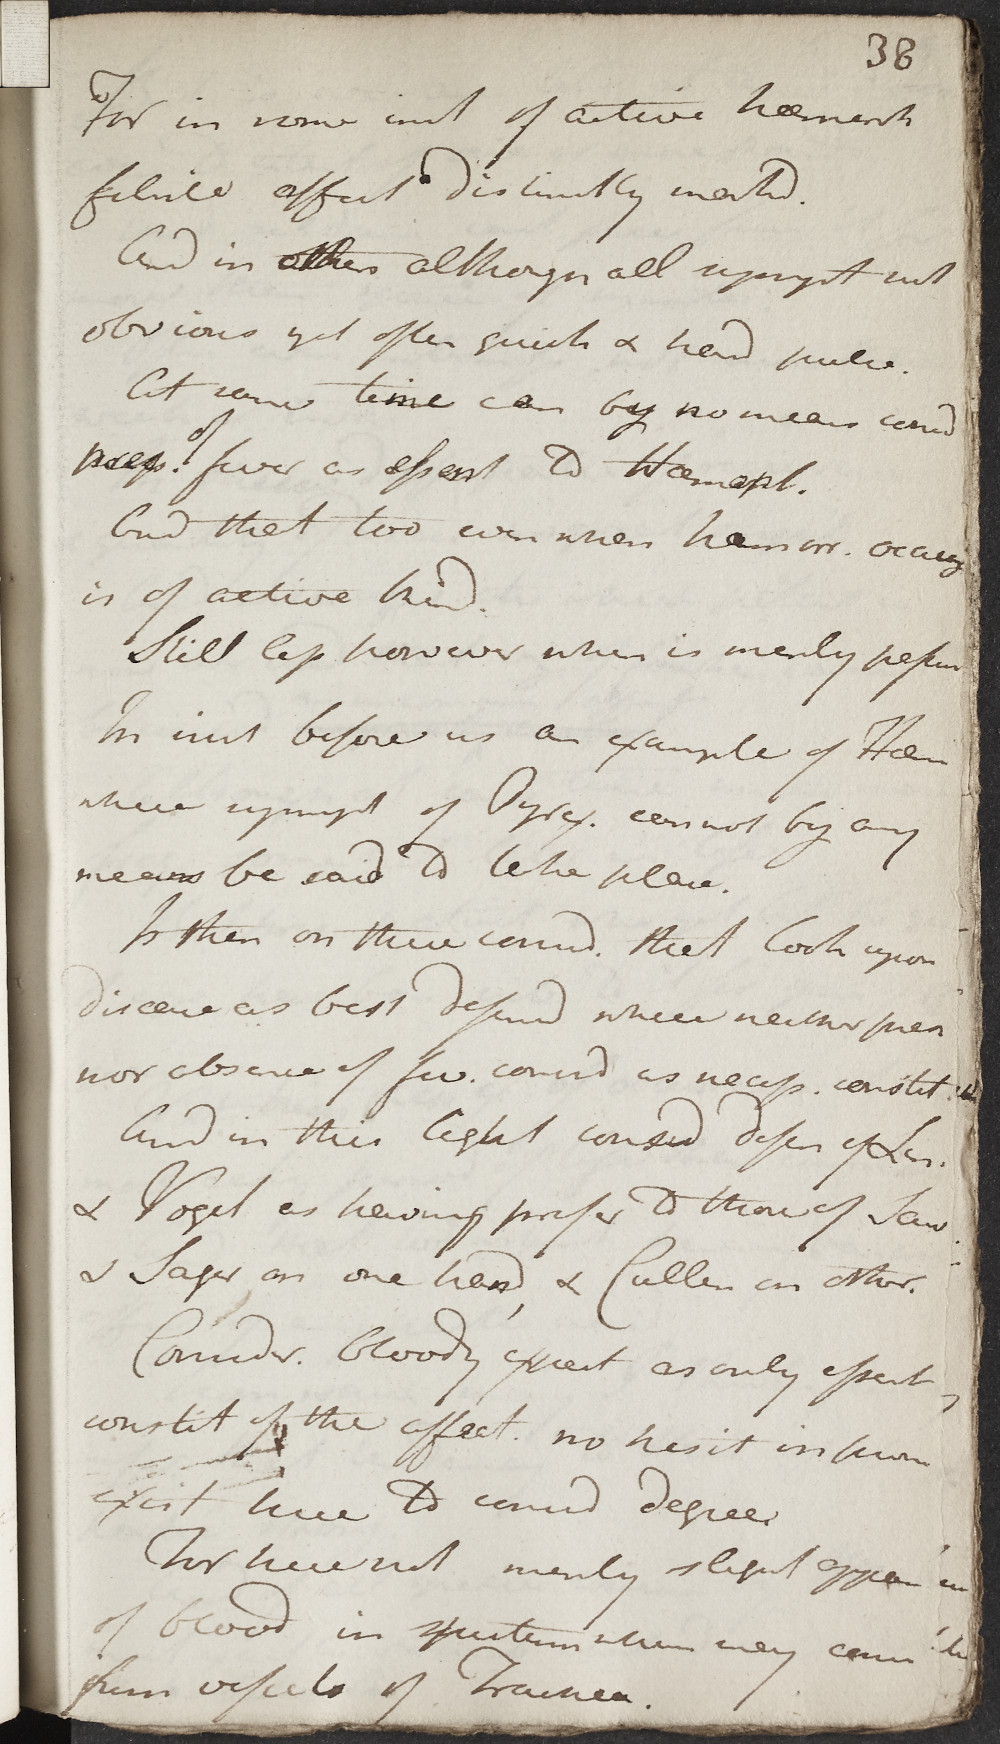 38
For in some inst of active hæmorrh
febrile affect distinctly markd.
And in others although all sympt not
obvious yet often quick & hard pulse.
At same time can by no means consid
pres. of fever as essent to Hæmopt.
And that too even when hæmorr. occurg
is of active kind.
Still less however when is merely passiv
In inst before us an example of Hæm
where sympt of Pyrex. cannot by any
means be said to take place.
Is then on these consid. that look upon
disease as best defind where neither pres
nor absence of fev. consid as necess. constit
And in this light consid defin of Lin.
& Vogel as having prefer to those of Sauv.
& Sager on one hand, & Cullen on other.
Consider. bloody expect as only essent
constit of the affect. no hesit in pron
exist here to consid degree
For here not merely slight appear
of blood in sputum when may come
from vessels of Trachea.